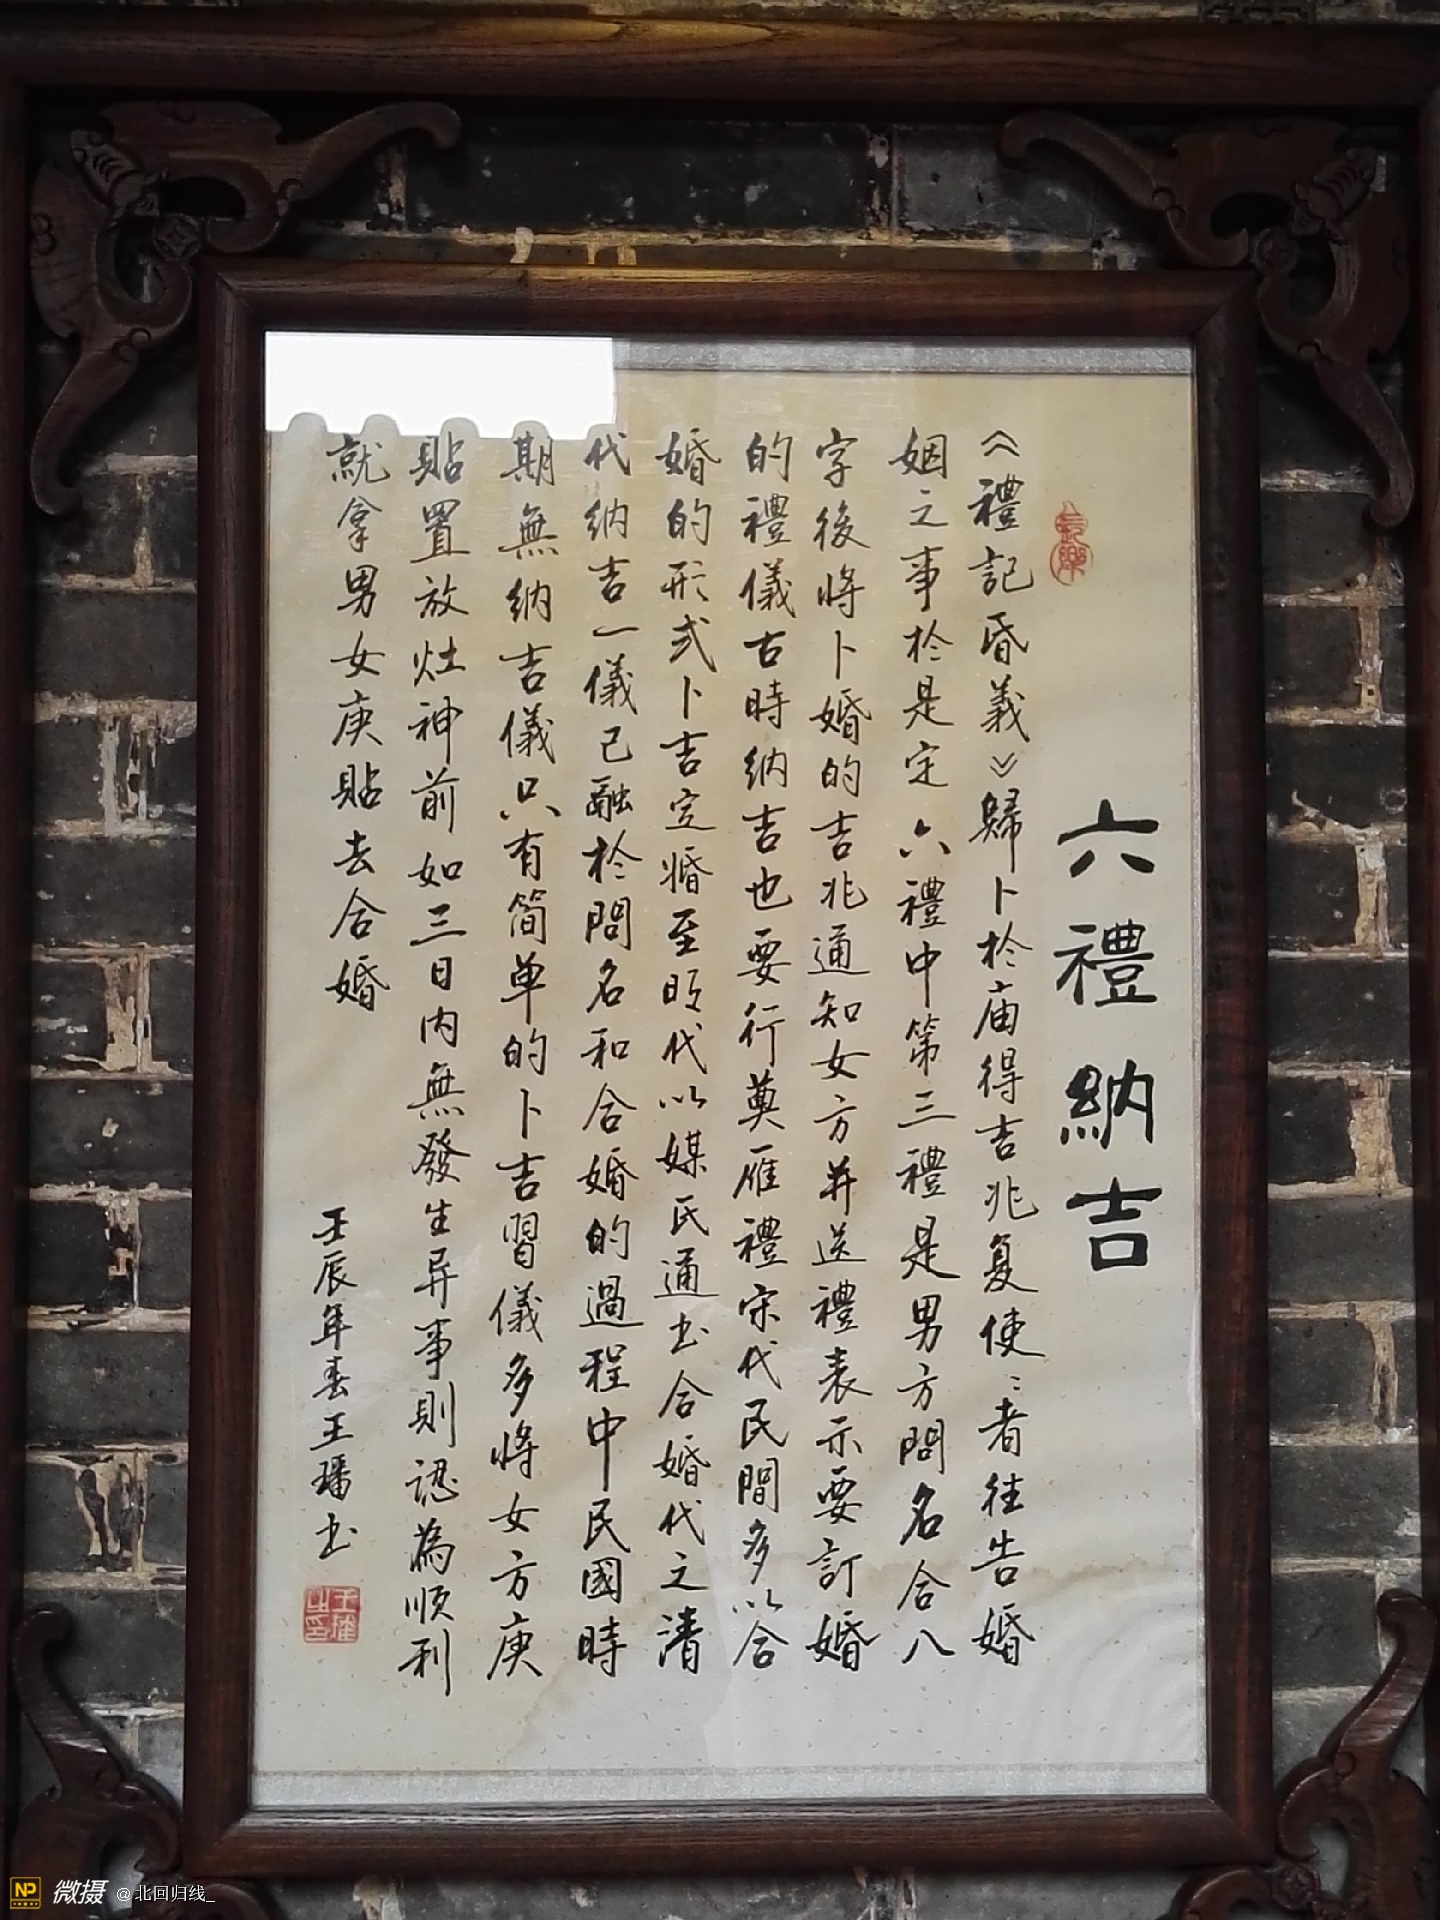 六禮納吉
《禮記昏義》歸卜於庙得吉兆复使:者往告婚
姻之事於是定六禮中第三禮是男方問名合八
字後将卜婚的吉兆通知女方并送禮表示要訂婚
的禮儀古時納吉也要行奠雁禮宋代民間多以合
婚的形式卜吉定婚至明代以媒氏通书合婚代之清
代纳吉一儀已融於問名和合婚的過程中民國時
期無納吉儀只有简单的卜吉習儀多将女方庚
貼置放灶神前如三日内無發生异事則認為順利
就拿男女庚貼去合婚
壬辰年春王璠书
NP 微摄 @北回归线_